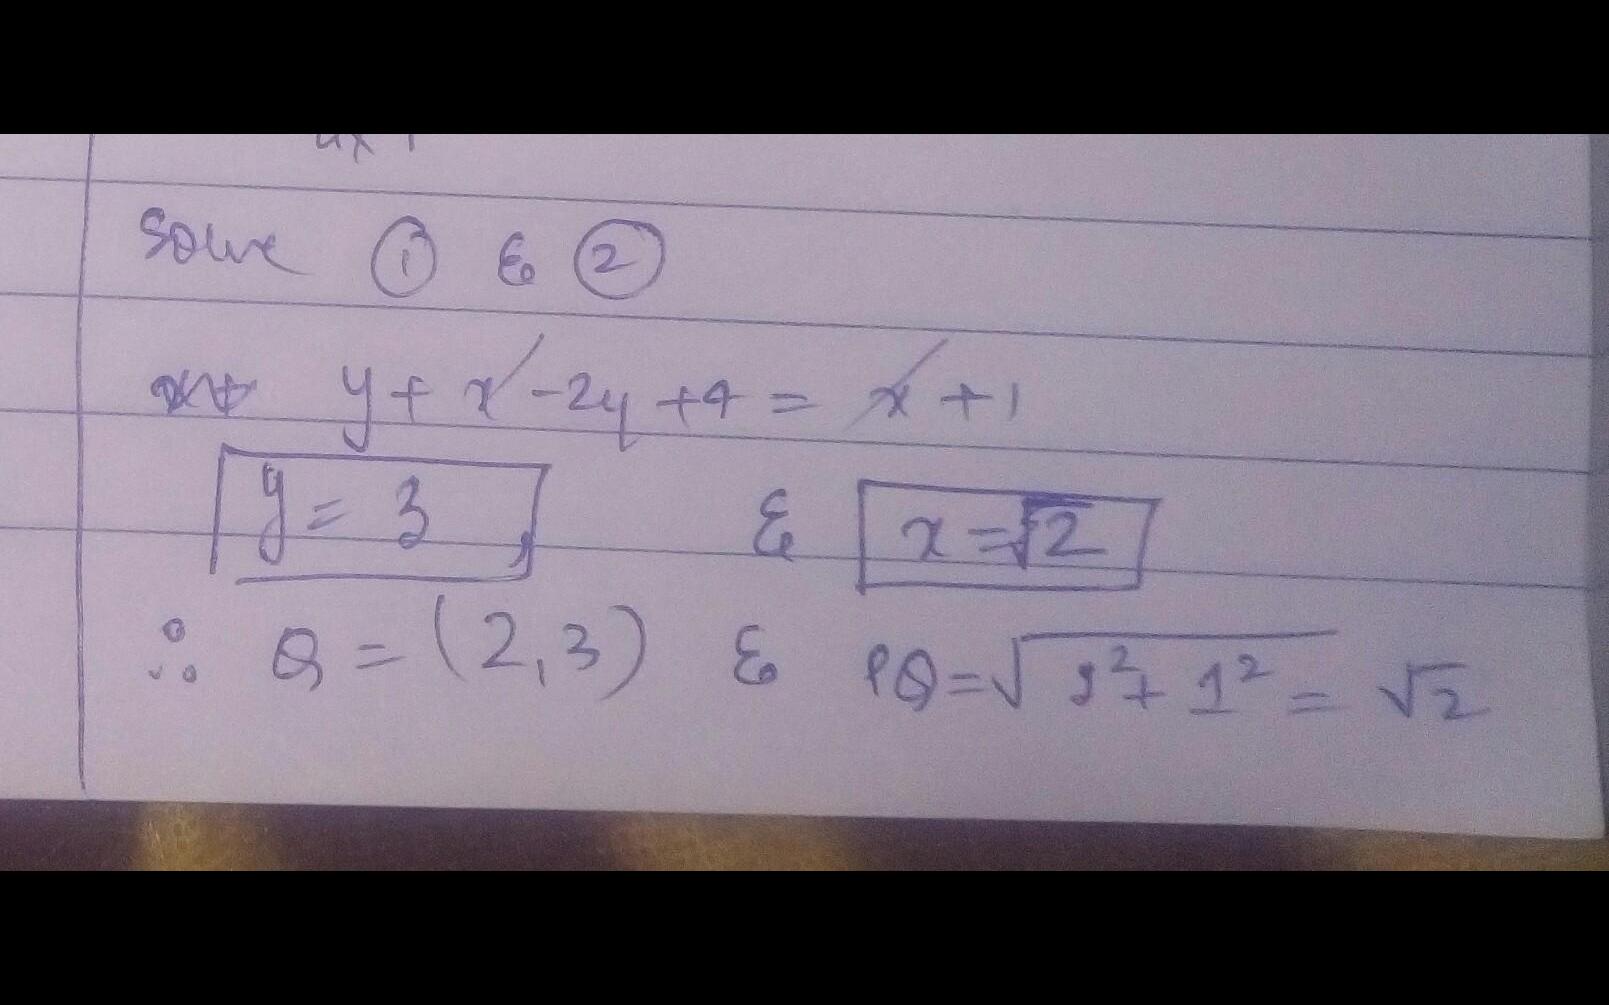 Solve ① & ②
y + x - 2y + 4 = x + 1
y = 3, & x = √2
∴ Q = (2,3) & PQ = √1²+1² = √2